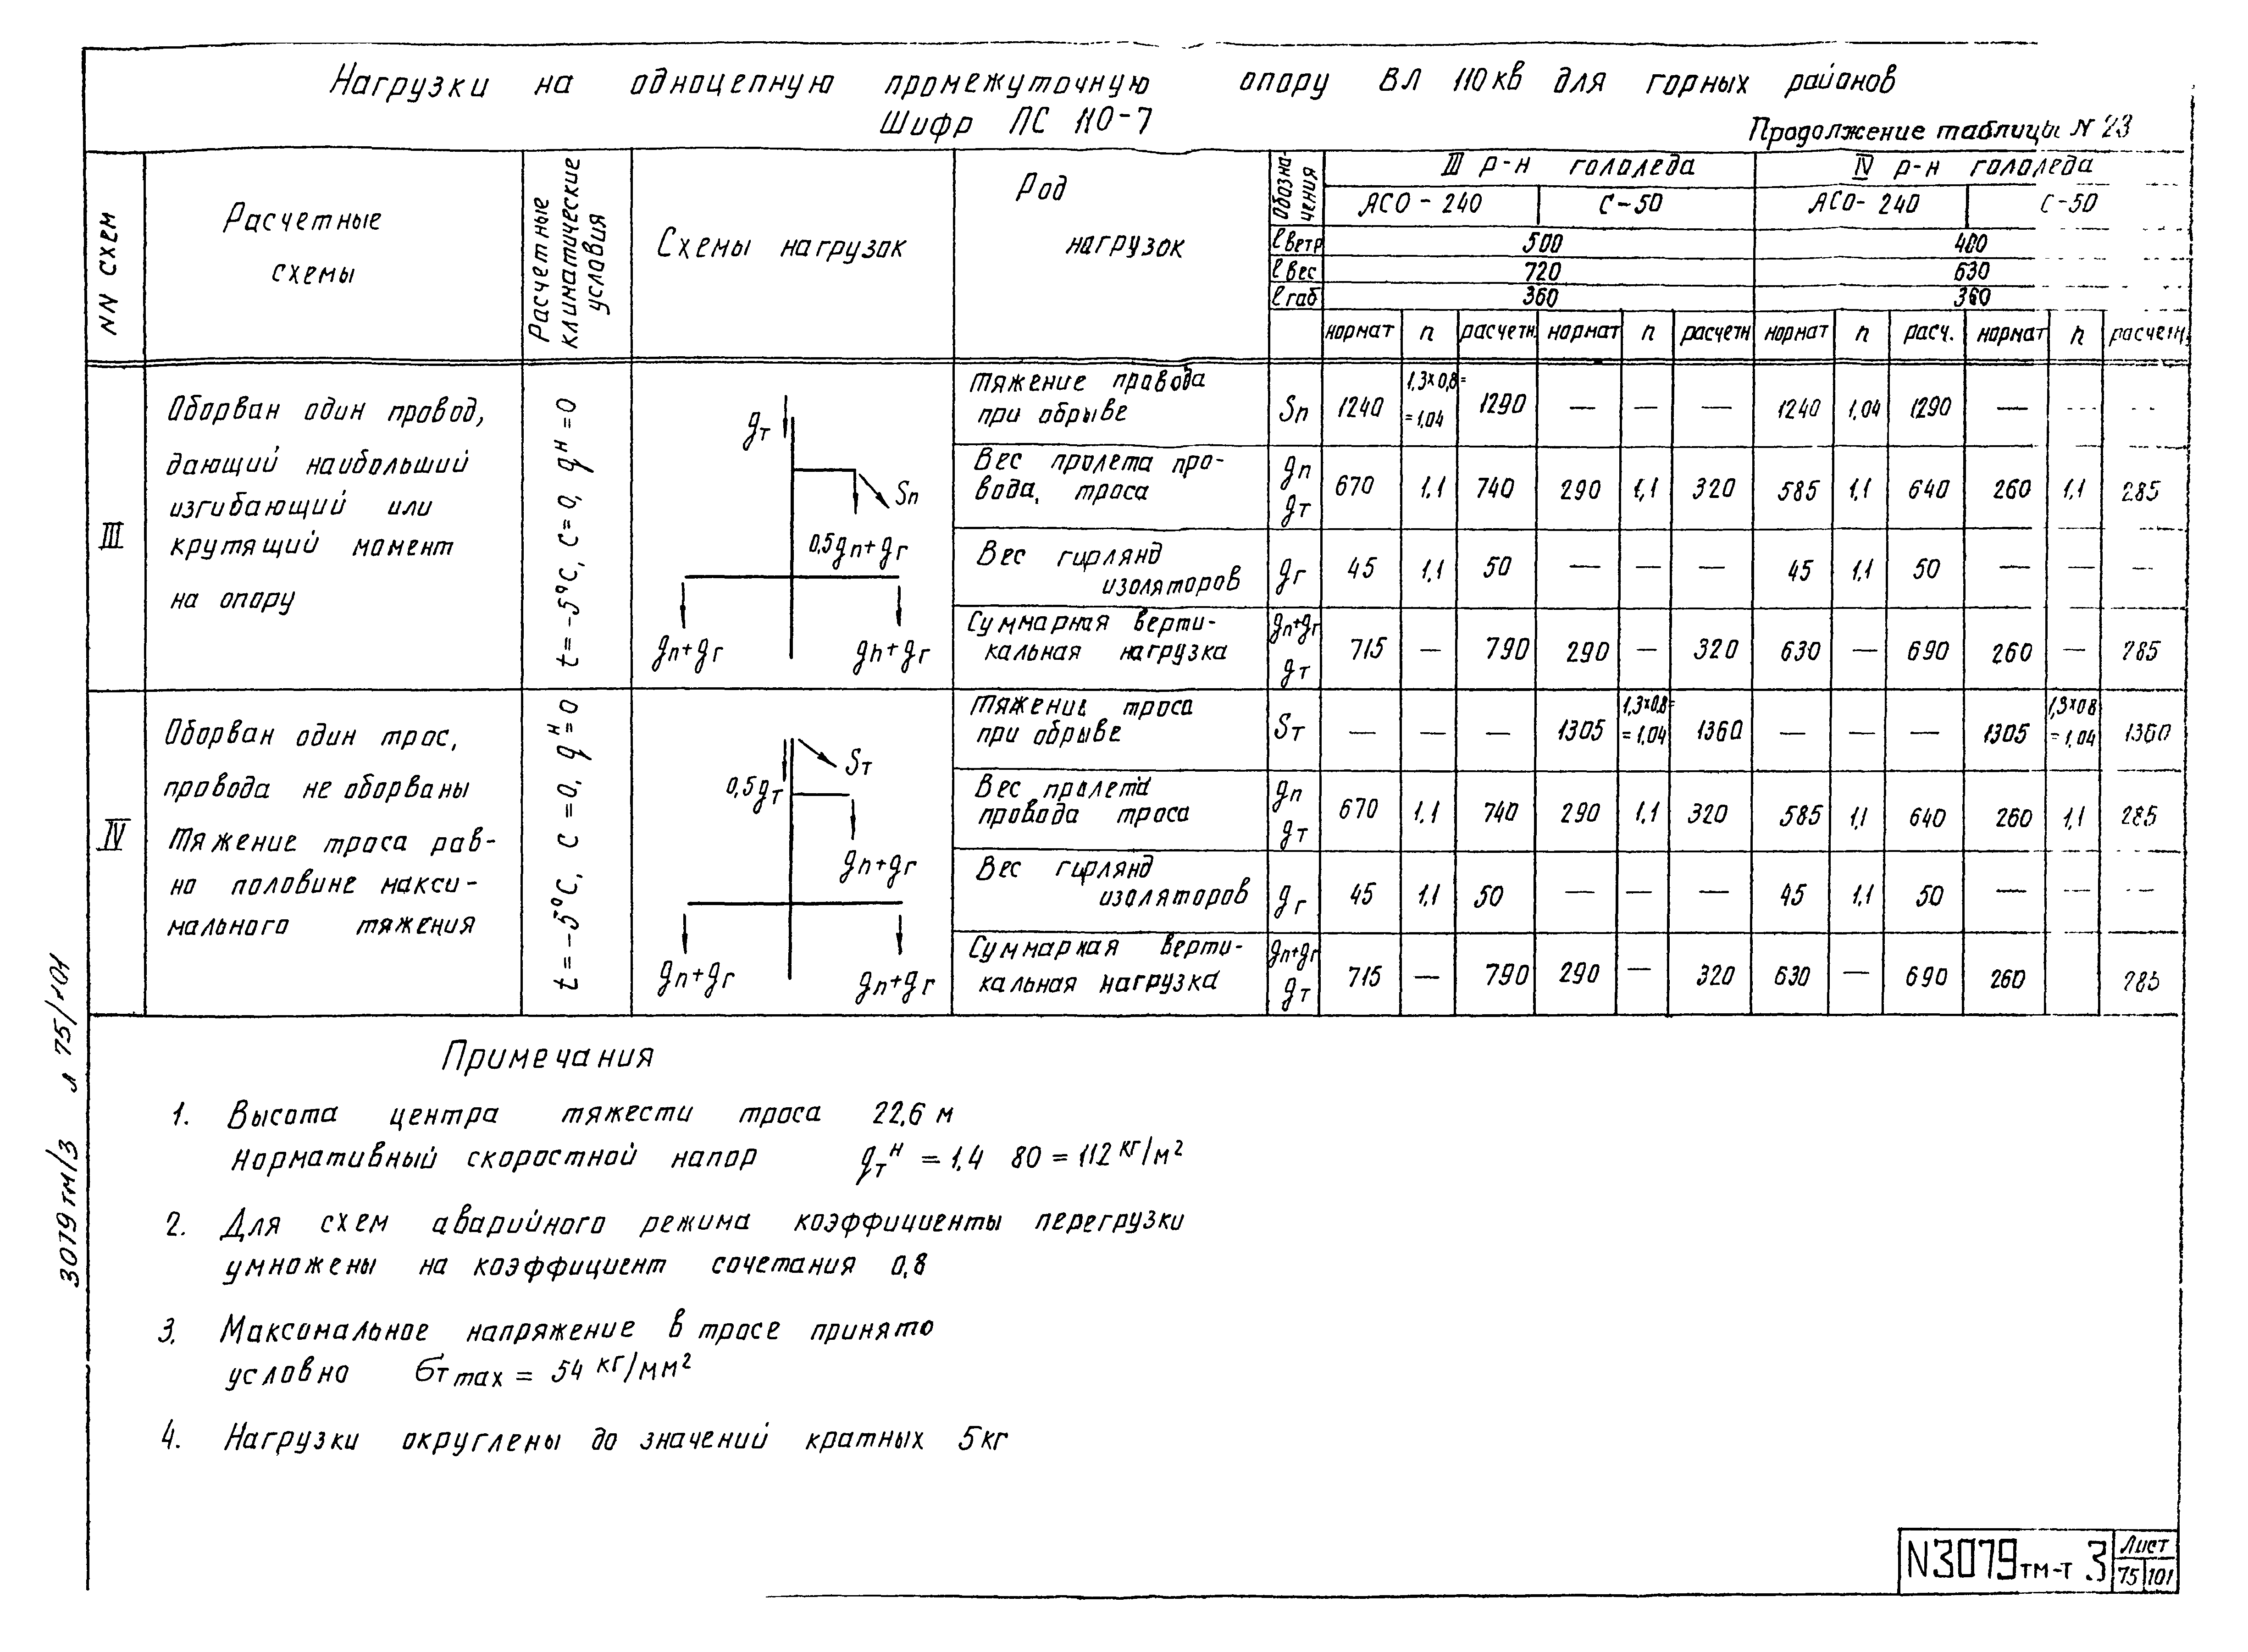 Нагрузки на одноцепную промежуточную опору ВЛ 110кв для горных районов
Шифр ПС 110-7
Продолжение таблицы N 23
NN схем
Расчетные
схемы
Расчетные
климатические
условия
Схемы нагрузок
Род
нагрузок
Обозна-
чения
III р-н гололеда
IV р-н гололеда
АСО-240 С-50 АСО-240 С-50
lветр 500 400
lвес 720 630
lгаб 360 360
нормат n расчетн. нормат n расчетн нормат n расч. нормат n расчетн.
III
Оборван один провод,
дающий наибольший
изгибающий или
крутящий момент
на опору
t=-5°C, C=0, qᴴ=0
gт
Sп
0,5gп+gг
gп+gг
gп+gг
Тяжение провода
при обрыве
Sп 1240 1,3×0,8= =1,04 1290 — — — 1240 1,04 1290 — — —
Вес пролета про-
вода, троса
gп
gт
670 1,1 740 290 1,1 320 585 1,1 640 260 1,1 285
Вес гирлянд
изоляторов
gг 45 1,1 50 — — — 45 1,1 50 — — —
Суммарная верти-
кальная нагрузка
gп+gг
gт
715 — 790 290 — 320 630 — 690 260 — 285
IV
Оборван один трос,
провода не оборваны
Тяжение троса рав-
но половине макси-
мального тяжения
t=-5°C, C=0, qᴴ=0
Sт
0,5gт
gп+gг
gп+gг
gп+gг
Тяжение троса
при обрыве
Sт — — — 1305 1,3×0,8= =1,04 1360 — — — 1305 1,3×0,8 =1,04 1360
Вес пролета
провода троса
gп
gт
670 1.1 740 290 1.1 320 585 1,1 640 260 1,1 285
Вес гирлянд
изоляторов
gг 45 1.1 50 — — — 45 1.1 50 — — —
Суммарная верти-
кальная нагрузка
gп+gг
gт
715 — 790 290 — 320 630 — 690 260 285
Примечания
1. Высота центра тяжести троса 22,6 м
Нормативный скоростной напор qтᴴ = 1.4 80 = 112 кг/м²
2. Для схем аварийного режима коэффициенты перегрузки
умножены на коэффициент сочетания 0,8
3. Максимальное напряжение в тросе принято
условно σт max = 54 кг/мм²
4. Нагрузки округлены до значений кратных 5кг
3079тм/3 л 75/101
N3079тм-т 3
Лист
75 101